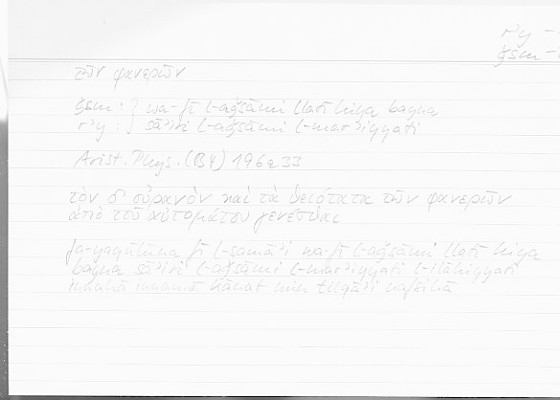 rʾy –
ǧsm –
τῶν φανερῶν
ǧsm : } wa-fī l-aǧsāmi llatī hiya bayna
rʾy : } sāʾiri l-aǧsāmi l-marʾiyyati
Arist. Phys. (B4) 196a33
τὸν δ' οὐρανὸν καὶ τὰ θειότατα τῶν φανερῶν
ἀπὸ τοῦ αὐτομάτου γενέσθαι
fa-yaqūlūna fī l-samāʾi wa-fī l-aǧsāmi llatī hiya
bayna sāʾiri l-aǧsāmi l-marʾiyyati l-ilāhiyyati
innahā innamā kānat min tilqāʾi nafsihā